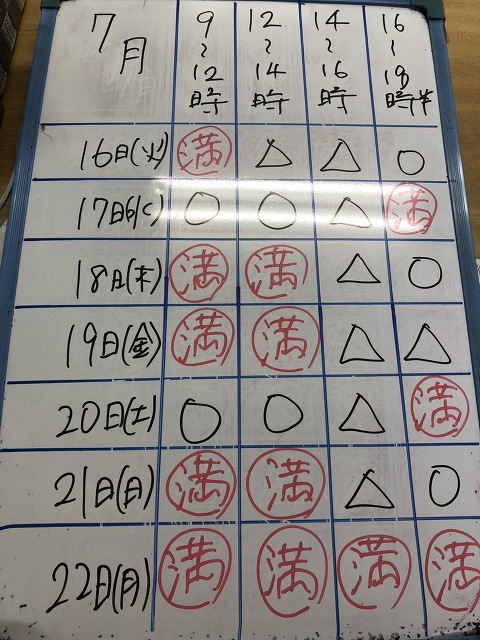 7月 9~12時 12~14時 14~16時 16~18時半
16日(火) 満 △ △ ○
17日(水) ○ ○ △ 満
18日(木) 満 満 △ ○
19日(金) 満 満 △ △
20日(土) ○ ○ △ 満
21日(日) 満 満 △ ○
22日(月) 満 満 満 満